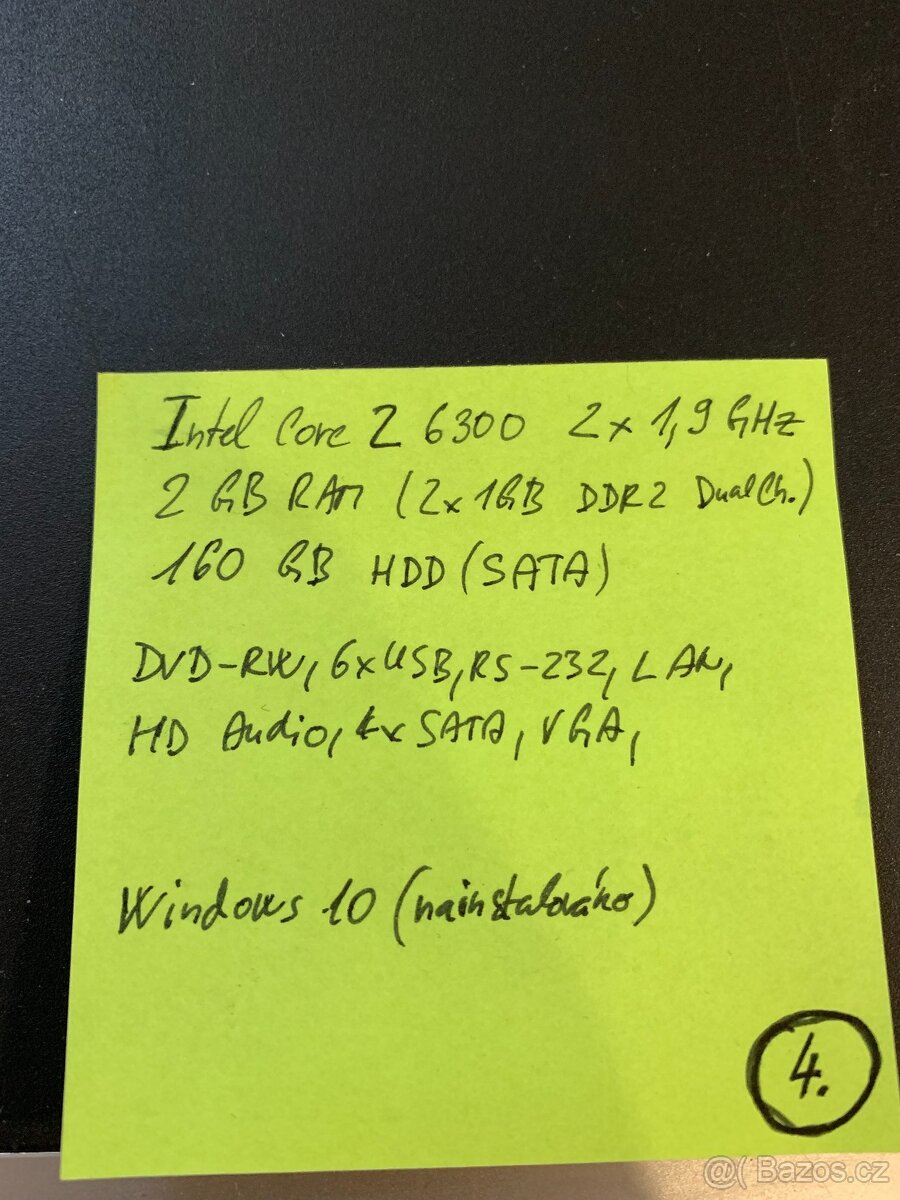 Intel Core 2 6300 2x1,9 GHz
2 GB RAM (2x1GB DDR2 Dual Ch.)
160 GB HDD (SATA)
DVD-RW, 6xUSB, RS-232, LAN,
HD Audio, 4x SATA, VGA,
Windows 10 (nainstalováno)
4.
@( Bazos.cz